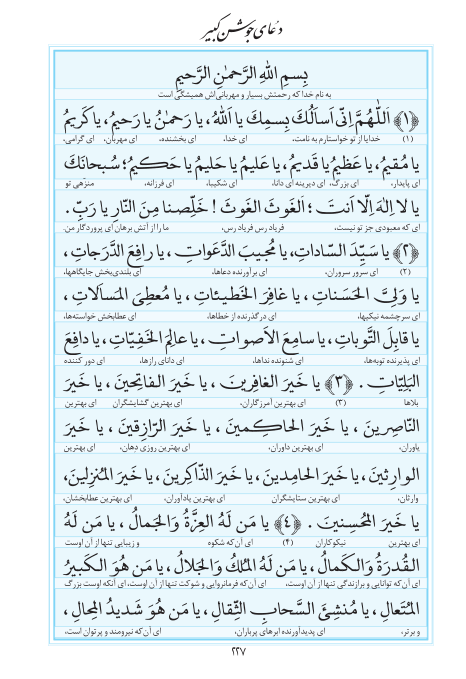 دعای جوشن کبیر
بِسمِ اللهِ الرَّحمٰنِ الرَّحیمِ
به نام خدا که رحمتش بسیار و مهربانی‌اش همیشگی است
﴿١﴾ اَللّٰهُمَّ اِنّی اَسأَلُکَ بِسمِکَ یا اَللّٰهُ، یا رَحمٰنُ یا رَحیمُ، یا کَریمُ
(۱) خدایا از تو خواستارم به نامت، ای خدا، ای بخشنده، ای مهربان، ای گرامی،
یا مُقیمُ، یا عَظیمُ یا قَدیمُ، یا عَلیمُ یا حَلیمُ یا حَکیمُ؛ سُبحانَکَ
ای پایدار، ای بزرگ، ای دیرینه ای دانا، ای شکیبا، ای فرزانه، منزّهی تو
یا لا اِلٰهَ اِلّا اَنتَ؛ اَلغَوثَ الغَوثَ! خَلِّصنا مِنَ النّارِ یا رَبِّ.
ای که معبودی جز تو نیست، فریاد رس فریاد رس، ما را از آتش برهان ای پروردگار من.
﴿٢﴾ یا سَیِّدَ السّاداتِ، یا مُجیبَ الدَّعَواتِ، یا رافِعَ الدَّرَجاتِ،
(۲) ای سرور سروران، ای برآورنده دعاها، ای بلندی‌بخش جایگاهها،
یا وَلِیَّ الحَسَناتِ، یا غافِرَ الخَطیئاتِ، یا مُعطِیَ المَسأَلاتِ،
ای سرچشمه نیکیها، ای درگذرنده از خطاها، ای عطابخش خواسته‌ها،
یا قابِلَ التَّوباتِ، یا سامِعَ الاَصواتِ، یا عالِمَ الخَفِیّاتِ، یا دافِعَ
ای پذیرنده توبه‌ها، ای شنونده نداها، ای دانای رازها، ای دور کننده
البَلِیّاتِ. ﴿٣﴾ یا خَیرَ الغافِرینَ، یا خَیرَ الفاتِحینَ، یا خَیرَ
بلاها (۳) ای بهترین آمرزگاران، ای بهترین گشایشگران ای بهترین
النّاصِرینَ، یا خَیرَ الحاکِمینَ، یا خَیرَ الرّازِقینَ، یا خَیرَ
یاوران، ای بهترین داوران، ای بهترین روزی دهان، ای بهترین
الوارِثینَ، یا خَیرَ الحامِدینَ، یا خَیرَ الذّاکِرینَ، یا خَیرَ المُنزِلینَ،
وارثان، ای بهترین ستایشگران ای بهترین یادآوران، ای بهترین عطابخشان،
یا خَیرَ المُحسِنینَ. ﴿٤﴾ یا مَن لَهُ العِزَّةُ وَالجَمالُ، یا مَن لَهُ
ای بهترین نیکوکاران (۴) ای آن‌که شکوه و زیبایی تنها از آن اوست
القُدرَةُ وَالکَمالُ، یا مَن لَهُ المُلکُ وَالجَلالُ، یا مَن هُوَ الکَبیرُ
ای آن‌که توانایی و برازندگی تنها از آن اوست، ای آن‌که فرمانروایی و شوکت تنها از آن اوست، ای آنکه اوست بزرگ
المُتَعالِ، یا مُنشِئَ السَّحابِ الثِّقالِ، یا مَن هُوَ شَدیدُ المِحالِ،
و برتر، ای پدیدآورنده ابرهای پرباران، ای آن‌که نیرومند و پرتوان است،
۲۲۷